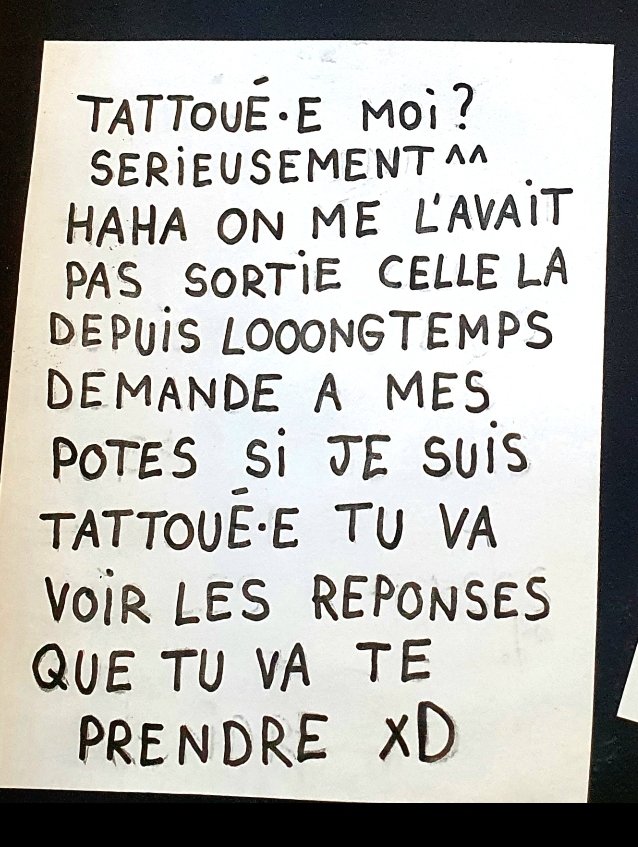 TATTOUÉ·E MOi?
SERiEUSEMENT ^^
HAHA ON ME L'AVAiT
PAS SORTiE CELLE LA
DEPUiS LOOONGTEMPS
DEMANDE A MES
POTES Si JE SUiS
TATTOUÉ·E TU VA
VOiR LES REPONSES
QUE TU VA TE
PRENDRE XD